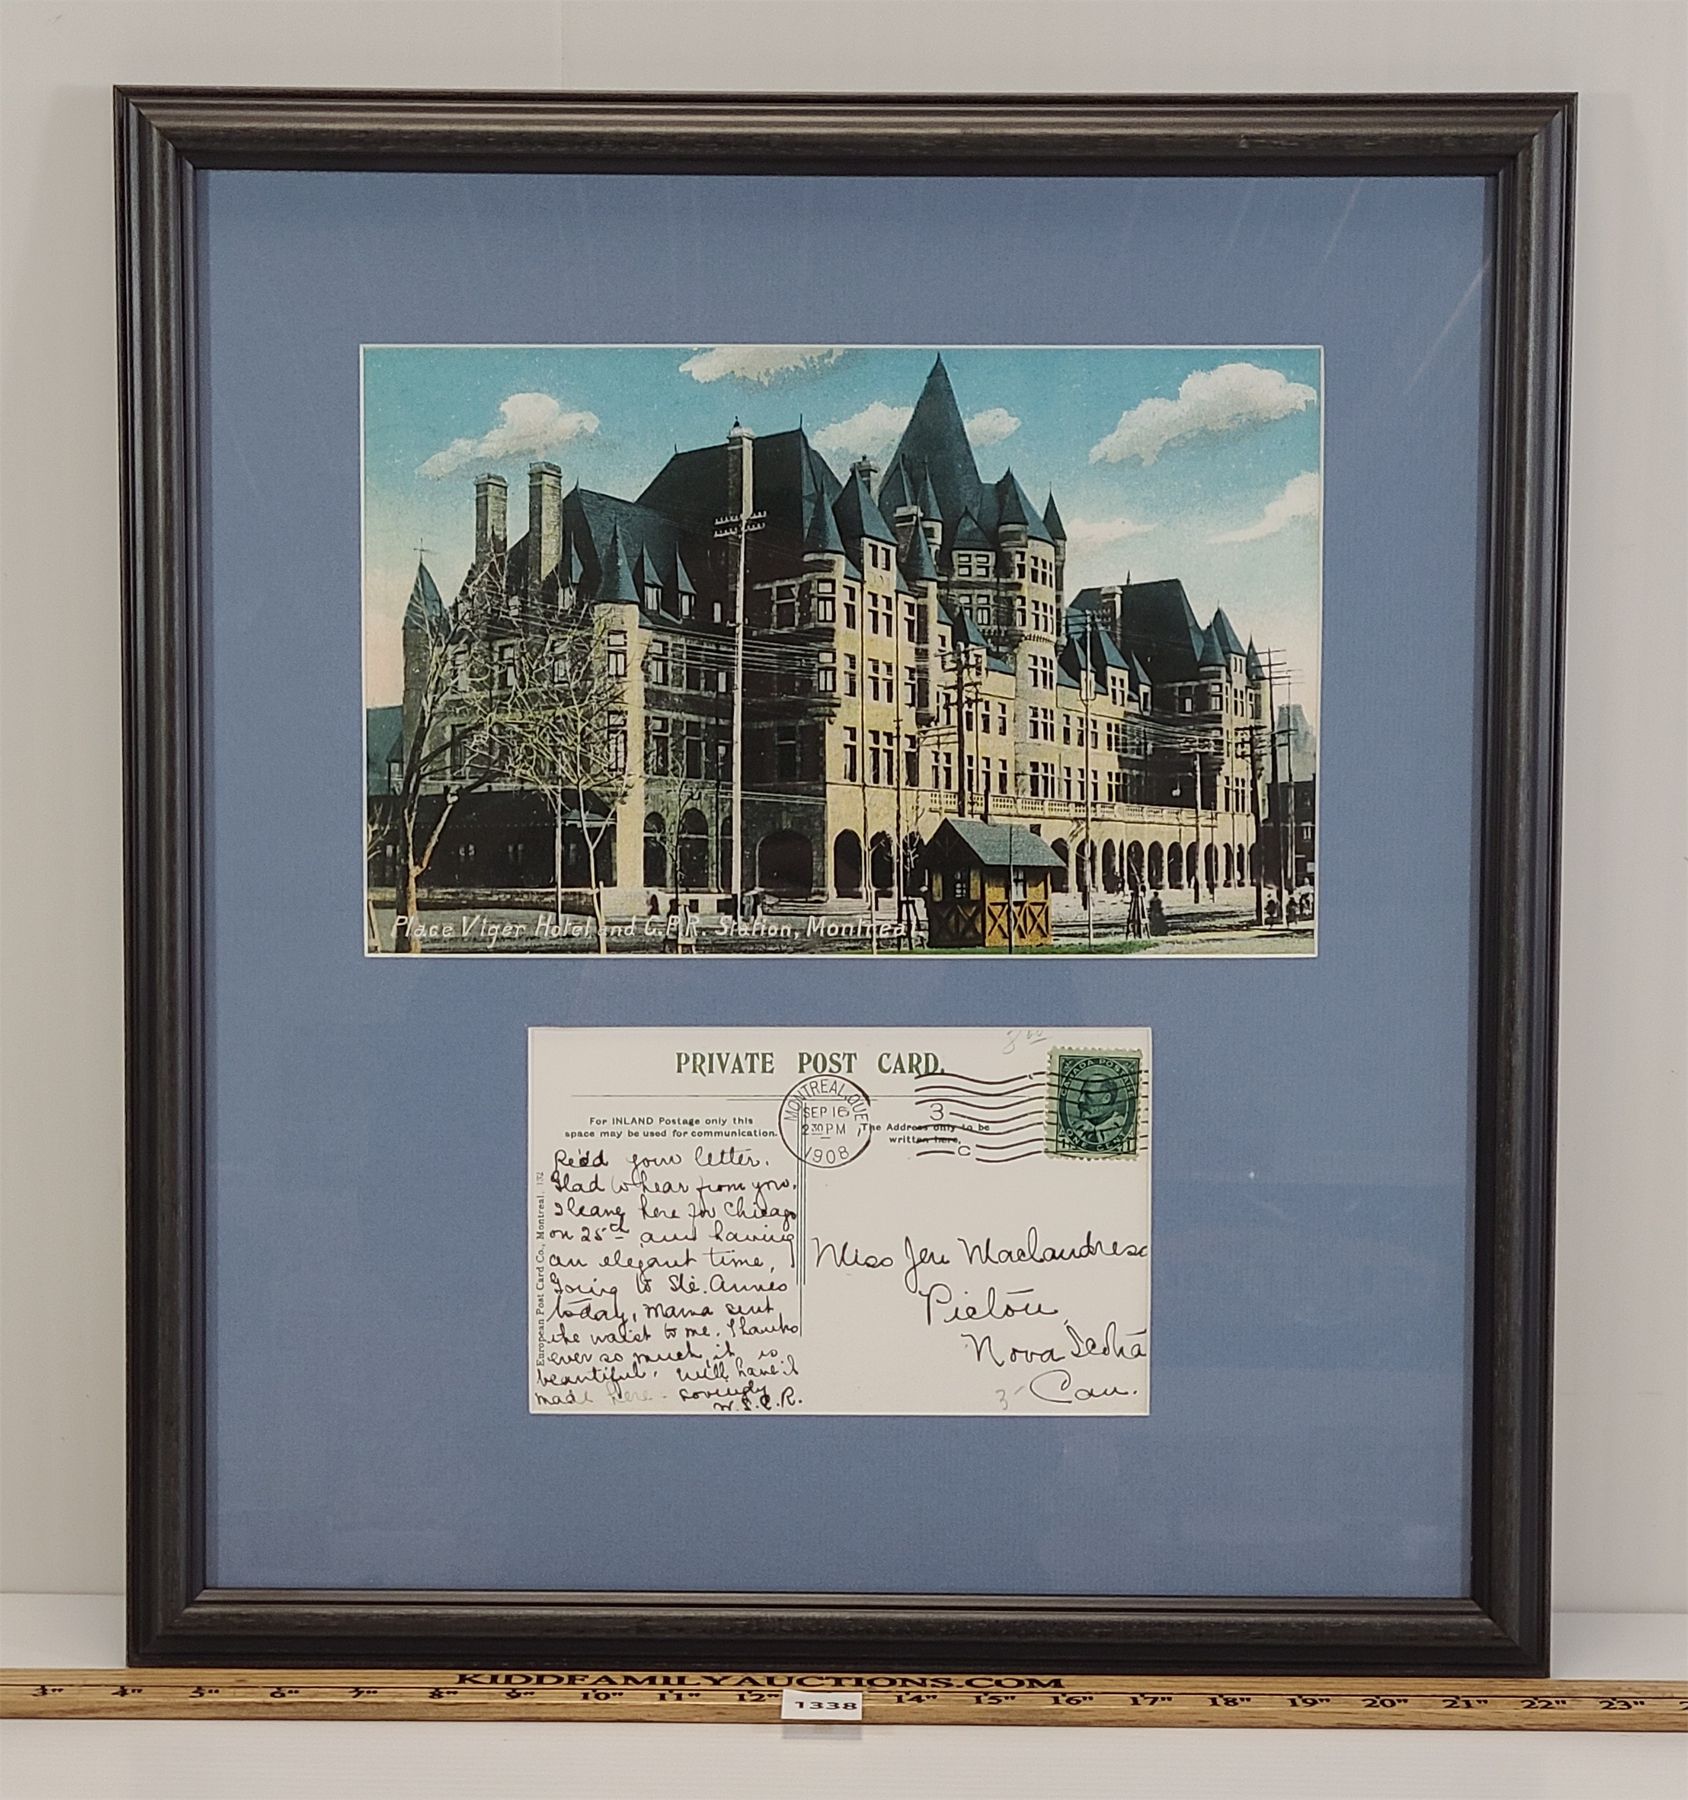 Place Viger Hotel and C.P.R. Station, Montreal.
8 00
PRIVATE POST CARD.
CANADA POSTAGE
ONE CENT
MONTREAL, QUE
SEP 16
2 30 PM
1908
3
C
For INLAND Postage only this
space may be used for communication.
The Address only to be
written here.
European Post Card Co., Montreal. 132
Rec'd your letter.
Glad to hear from you.
I leave here for Chicago
on 25th am having
an elegant time,
Going to Ste. Annes
today, Mama sent
the waist to me. Thanks
ever so much, it is
beautiful. Will have it
made here. Lovingly
Miss Jen Maclandress
Pictou
Nova Scotia
3- Can.
KIDDFAMILYAUCTIONS.COM
3" 4" 5" 6" 7" 8" 9" 10" 11" 12" 14" 15" 16" 17" 18" 19" 20" 21" 22" 23"
1338